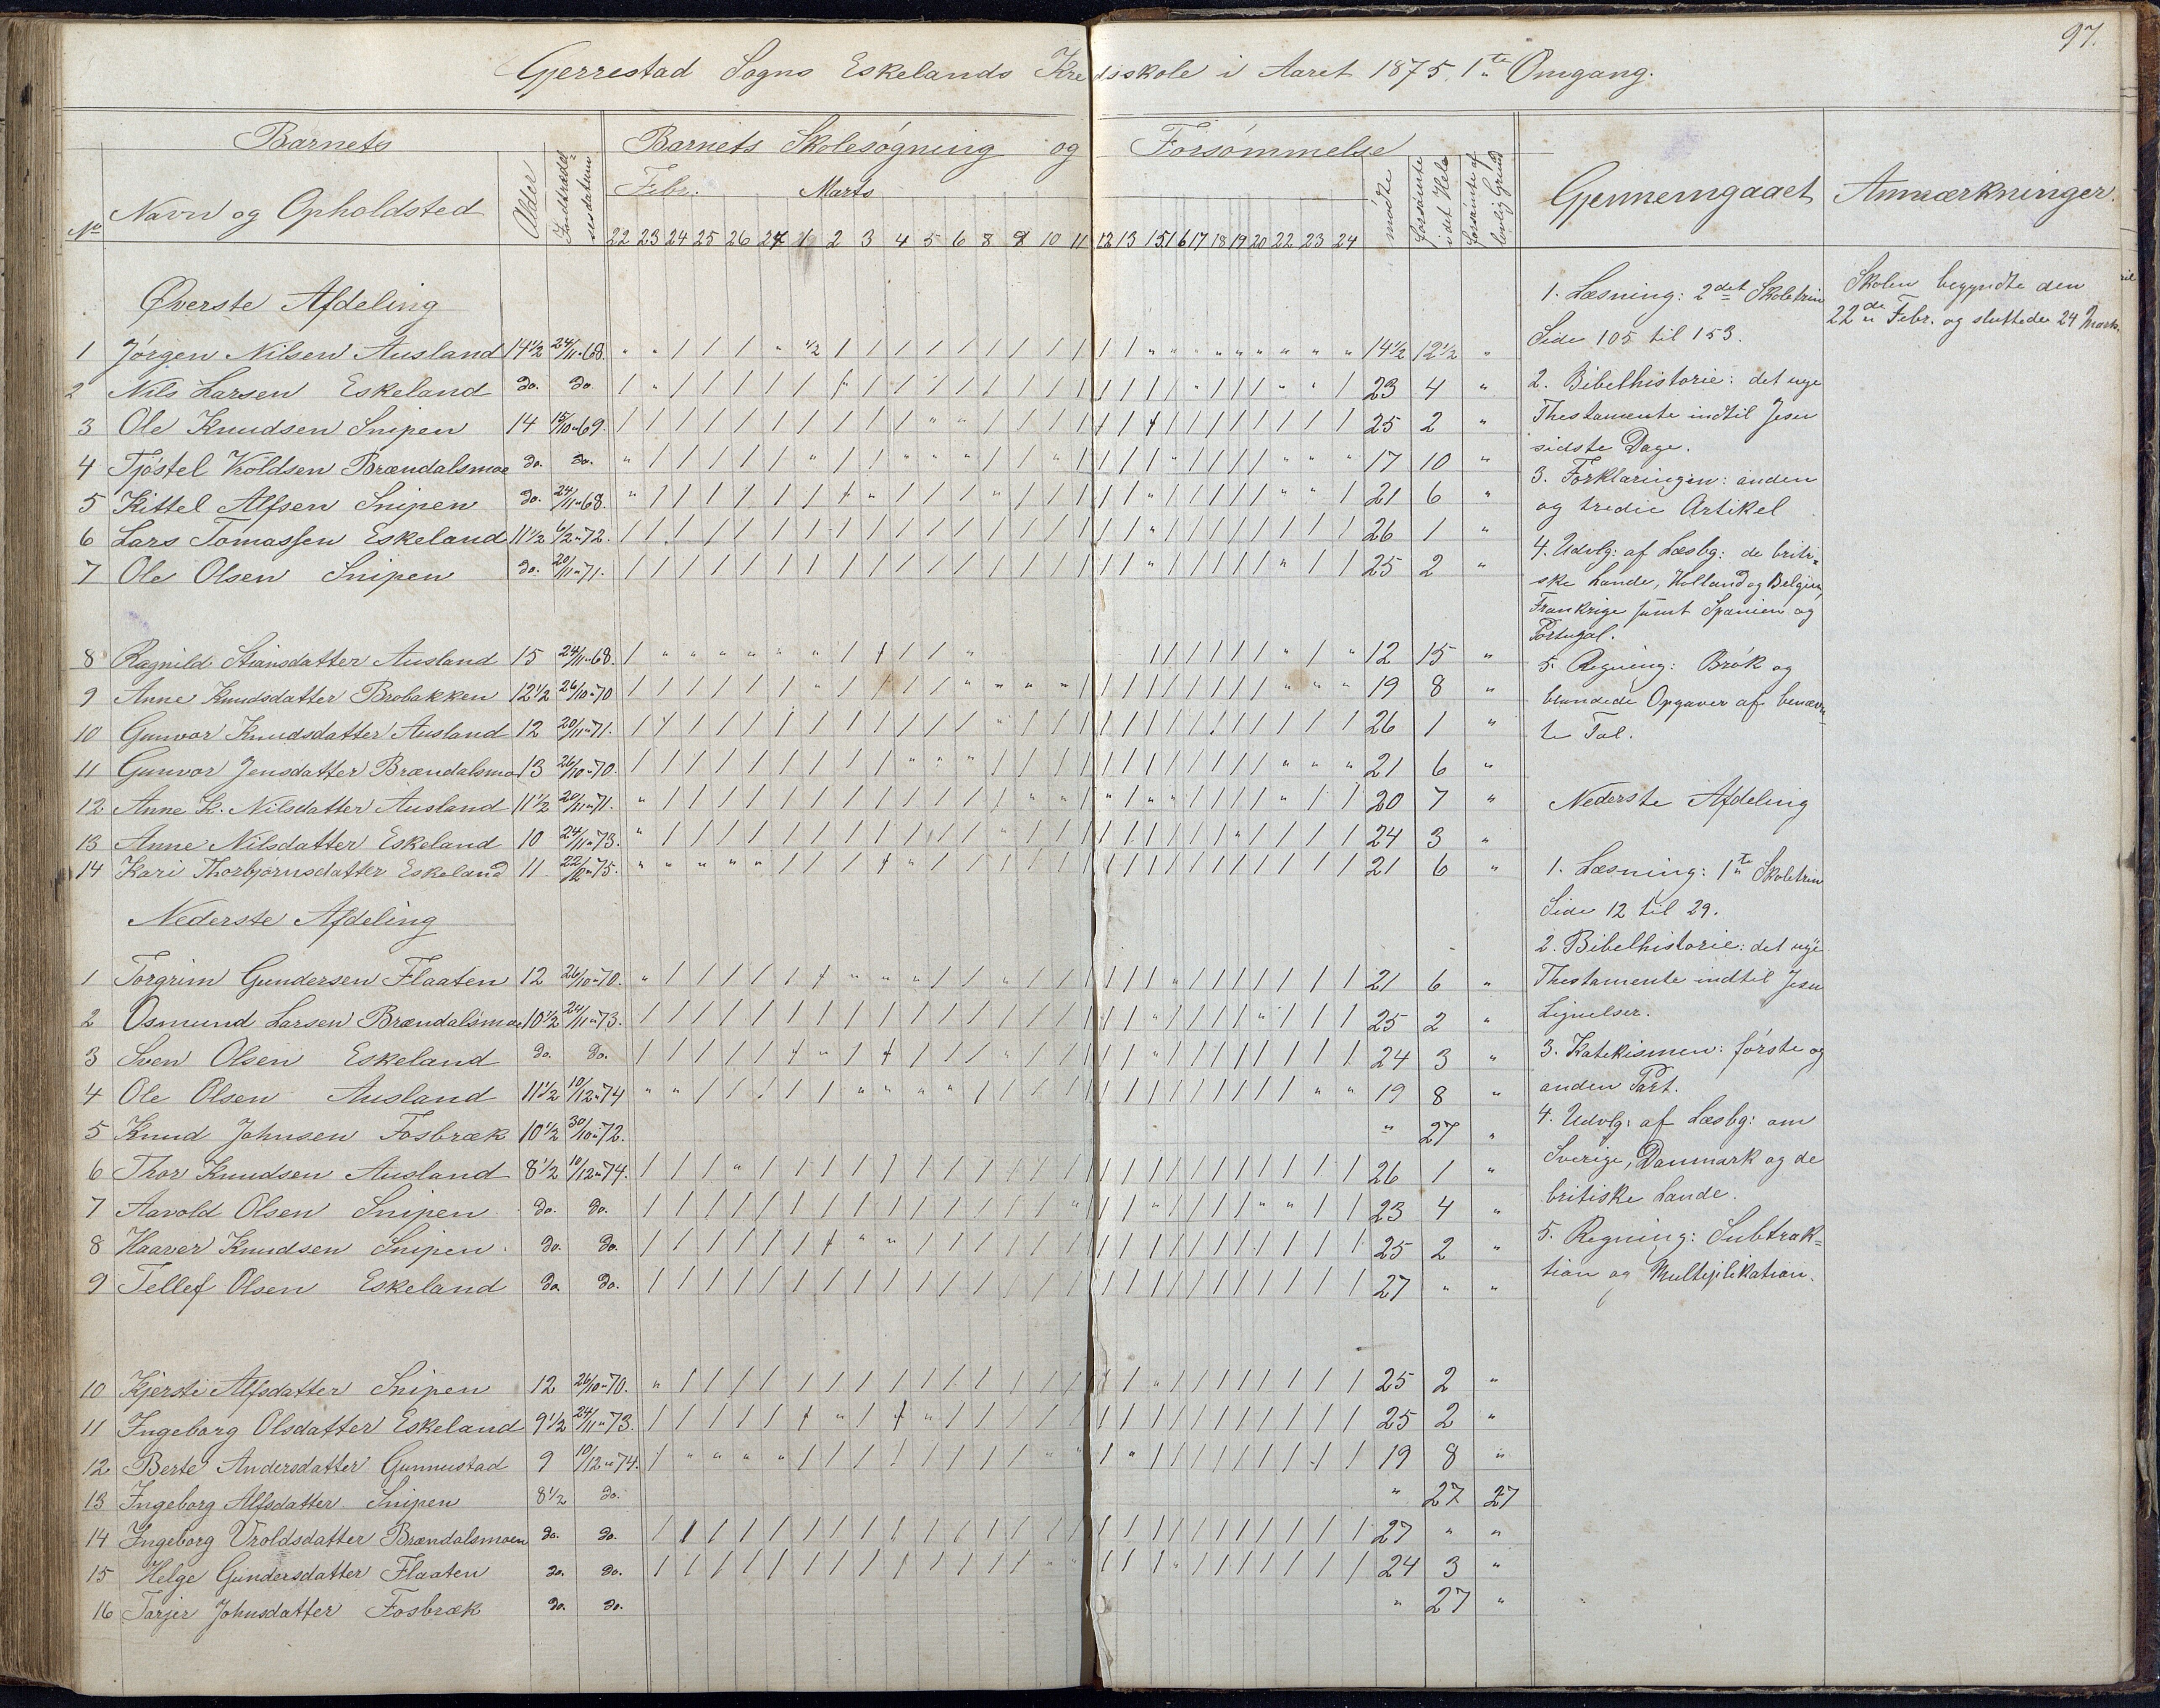 97.
Gjerrestad Sogns Eskelands Kredsskole i Aaret 1875. 1te Omgang.
Barnets
Barnets Skolesøgning og Forsømmelse
No Navn og Opholdsted Alder Indtrædelsesdatum Febr. Marts mødte forsømte i det Hele forsømte af lovlig Grund Gjennemgaaet Anmærkninger.
22 23 24 25 26 27 1 2 3 4 5 6 8 9 10 11 12 13 15 16 17 18 19 20 22 23 24
Øverste Afdeling
1 Jørgen Nilsen Ausland 14 1/2 24/11 "68. " " / / / " 1/2 / / / / / / / / / / / " " " " " " " " " 14 1/2 12 1/2 "
2 Nils Larsen Eskeland do. do 23 4 "
3 Ole Knudsen Snipen 14 15/10 "69. 25 2 "
4 Tjøstel Vroldsen Brændalsmoe do. do. 17 10 "
5 Kittel Alfsen Snipen do. 24/11 "68. 21 6 "
6 Lars Tomassen Eskeland 11 1/2 6/2 "72. 26 1 "
7 Ole Olsen Snipen do. 20/11 "71. 25 2 "
8 Ragnild Stiansdatter Ausland 15 24/11 "68. 12 15 "
9 Anne Knudsdatter Brobakken 12 1/2 26/10 "70 19 8 "
10 Gunvor Knudsdatter Ausland 12 20/11 "71. 26 1 "
11 Gunvor Jensdatter Brændalsmo 13 26/10 "70. 21 6 "
12 Anne K. Nilsdatter Ausland 11 1/2 20/11 "71. 20 7 "
13 Anne Nilsdatter Eskeland 10 24/11 "73. 24 3 "
14 Kari Thorbjørnsdatter Eskeland 11 22/2 "75. 21 6 "
Nederste Afdeling
1 Torgrim Gundersen Flaaten 12 26/10 "70. 21 6 "
2 Osmund Larsen Brændalsmoe 10 1/2 24/11 "73. 25 2 "
3 Sven Olsen Eskeland do. do. 24 3 "
4 Ole Olsen Ausland 11 1/2 10/12 "74 19 8 "
5 Knud Johnsen Fosbræk 10 1/2 30/10 "72. " 27 "
6 Thor Knudsen Ausland 8 1/2 10/12 "74. 26 1 "
7 Aavold Olsen Snipen do. do. 23 4 "
8 Haaver Knudsen Snipen. do. do. 25 2 "
9 Tellef Olsen Eskeland do do. 27 " "
10 Kjersti Alfsdatter Snipen 12 26/10 "70. 25 2 "
11 Ingeborg Olsdatter Eskeland 9 1/2 24/11 "73. 25 2 "
12 Berte Andersdatter Gunnustad 9 10/12 "74. 19 8 "
13 Ingeborg Alfsdatter Snipen 8 1/2 do. " 27 27
14 Ingeborg Vroldsdatter Brændalsmoen do. do. 27 " "
15 Helge Gundersdatter Flaaten do. do. 24 3 "
16 Tarjer Johnsdatter Fosbræk do. do. " 27 "
1. Læsning: 2det Skoletrin
Side 105 til 153.
2. Bibelhistorie: det nye
Thestamente indtil Jesu
sidste Dage.
3. Forklaringen: anden
og tredie Artikel
4. Udvlg: af Læsbg: de briti-
ske Lande, Holland og Belgien,
Frankrige samt Spanien og
Portugal.
5. Regning: Brøk og
blandede Opgaver af benævn-
te Tal.
Nederste Afdeling
1. Læsning: 1te Skoletrin
Side 12 til 29.
2. Bibelhistorie: det nye
Thestamente indtil Jesu
Lignelser.
3. Katekismen: første og
anden Part.
4. Udvlg: af Læsbg: om
Sverige, Danmark og de
britiske Lande.
5. Regning: Subtrak=
tion og Multiplikation.
Skolen begyndte den
22de Febr. og sluttede 24 Marts.